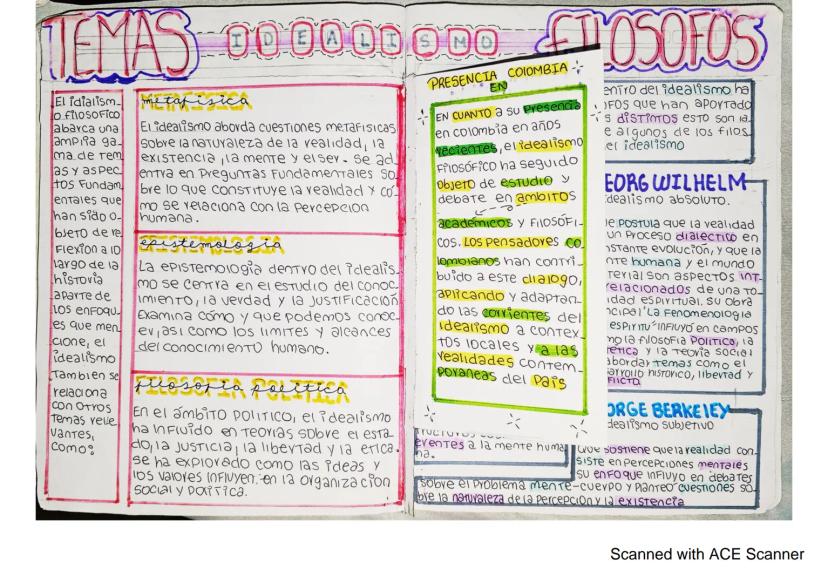 TEMAS
IDEALISMO
FILOSOFOS
El idealism_
o filosófico
abarca una
amplia ga_
ma de tem_
as y aspec_
tos Fundam_
entales que
han sido o_
bjeto de re_
Flexión a lo
largo de la
historia
aparte de
los enfoqu_
es que men_
cione, el
idealismo
Tambien se
relaciona
con otros
Temas rele_
vantes,
como:
metafisica
El idealismo aborda cuestiones metafísicas
sobre la naturaleza de la realidad, la
existencia, la mente y el ser. se ad_
entra en Preguntas Fundamentales so_
bre lo que constituye la realidad y có_
mo se relaciona con la percepción
humana.
epistemologia
La epistemología dentro del idealis_
mo se centra en el estudio del conoc_
imiento, la verdad y la justificación
Examina cómo y que podemos conoc_
er, así como los limites y alcances
del conocimiento humano.
filosofia politica
En el ámbito político, el idealismo
ha influido en teorías sobre el esta_
do, la justicia, la libertad y la etica.
se ha explorado como las ideas y
los valores influyen en la organización
social y política.
PRESENCIA EN COLOMBIA
EN CUANTO a su Presencia
en colombia en años
recientes, el idealismo
Filosófico ha seguido
objeto de estudio y
debate en ambitos
académicos y Filosófi_
cos. Los pensadores co_
lombianos han contri_
buido a este dialogo,
aplicando y adaptan_
do las corrientes del
idealismo a contex_
tos locales y a las
realidades contem_
poraneas del País
entro del idealismo ha
ofos que han aportado
s distintos esto son la
e algunos de los filos
el idealismo
EORG WILHELM
idealismo absoluto.
ue postula que la realidad
un Proceso dialéctico en
nstante evolución, y que la
nte humana y el mundo
terial son aspectos int_
relacionados de una to_
idad espiritual. su obra
ncipal "La Fenomenología
espíritu" influyó en campos
mo la filosofía Política, la
ética y la teoría social
abordar temas como el
arrollo histórico, libertad y
flicto
ORGE BERKELEY
dealismo subjetivo
Que sostiene que la realidad con_
siste en percepciones mentales
su enfoque influyo en debates
sobre el problema mente-cuerpo y planteó cuestiones so_
bre la naturaleza de la percepción y la existencia
erentes a la mente huma_
na.
Scanned with ACE Scanner